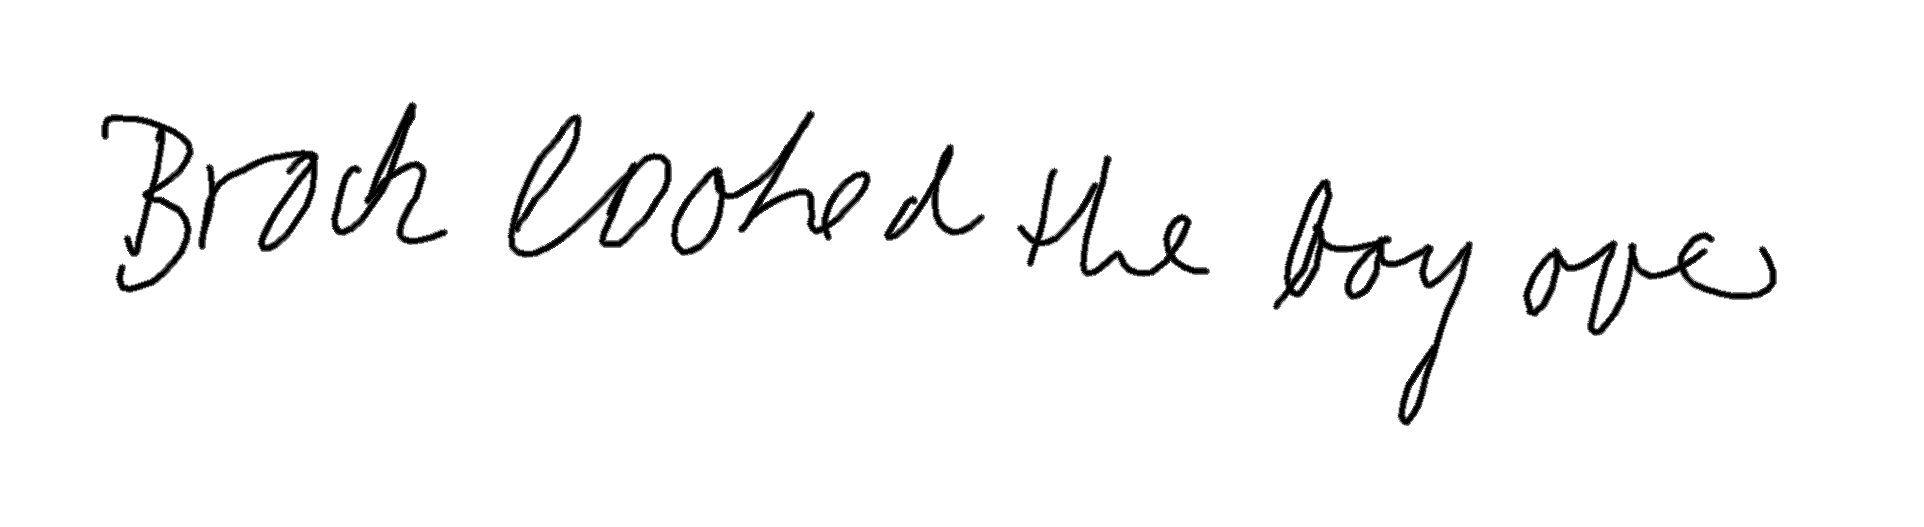 Brock looked the boy over